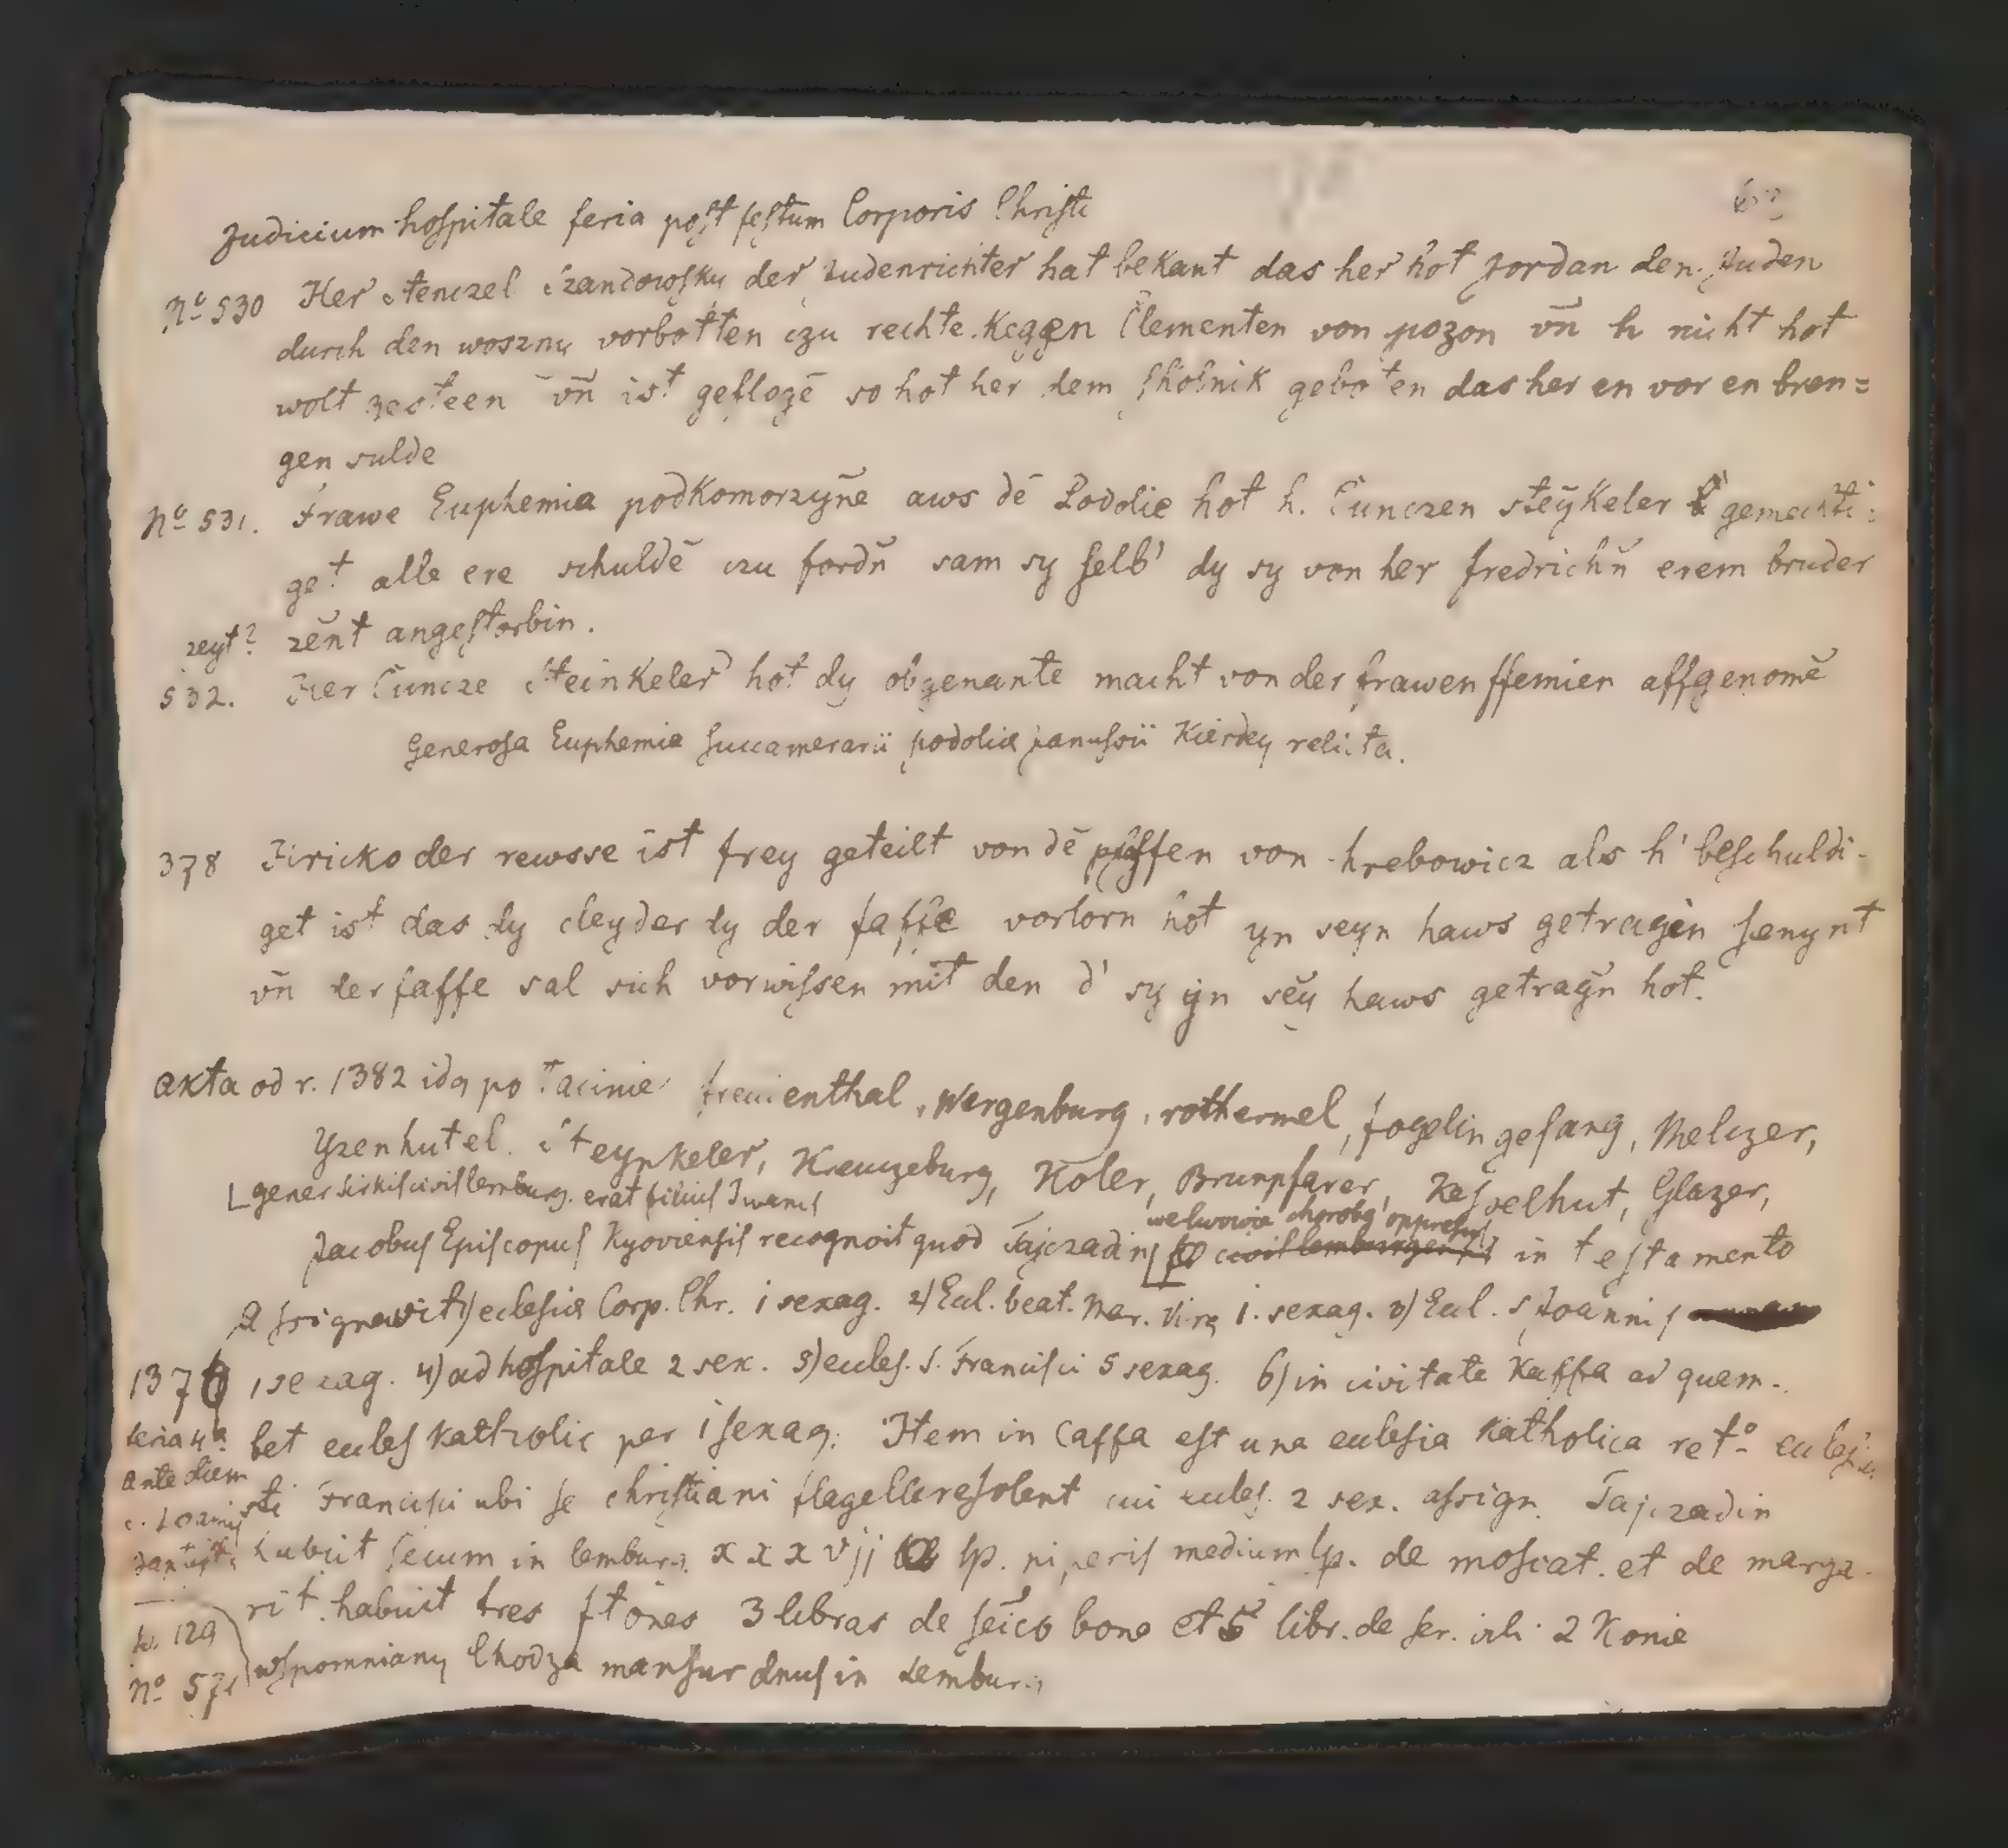 Judicium hospitale feria post festum Corporis Christi
No 530 Her Stenczel Czandowsky der Judenrichter hat bekant das her hot Jordan den Juden
durch den woszny vorbotten czu rechte kegen Clementen von pozon vn̄ h nicht hot
wolt gesteen vn̄ ist geflogē so hot her dem Skolnik geboten das her en vor en bren=
gen sulde
No 531. Frawe Euphemia podkomorzyne aws dē Podolie hot h. Cunczen steykeler gemechti:
get alle ere schuldē czu fordn̄ sam sy selb' dy sy von her fredrichn̄ erem bruder
zeyt? zent angestorbin.
532. Her Cuncze Steinkeler hot dy obgenante macht von der frawen ffemien affgenomē
Generosa Euphemia succamerarii podolie Janussii Kierdey relicta.
378 Hricko der rewsse ist frey geteilt von dē pfaffen von hrebowicz als h' beschuldi-
get ist das dy cleyder dy der faffe vorlorn hot yn seyn haws getragen senynt
vn̄ der faffe sal sich vorwissen mit den d' sy yn sey haws getragn̄ hot.
axta od r. 1382 idą po łacinie freuenthal, Wergenburg, rothermel, fogelin gesang, Melczer,
Yzenhutel. Steynkeler, Kreuczeburg, Koler, Brunpfarer, Kesselhut, Glazer,
gener Sirkis civis lemburg. erat filius Iwanis
we lwowie chorobą oppressus
Jacobus Episcopus Kyoviensis recognoit quod Tajczadin civis lemburgensis in testamento
Assignavit 1) eclesiæ Corp. Chr. 1 sexag. 2) Eccl. beat. Mar. Virg 1. sexag. 3) Eccl. S Joannis
1376 1 sexag. 4) ad hospitale 2 sex. 5) ecules. S. Francisci 5 sexag. 6) in civitate Kaffa ad quem-
feria 4ta bet ecules Katholic per 1 sexag: Item in Caffa est una eculesia Katholica ret.o
ante diem sti Francisci ubi se christiani flagellare solent cui ecules. 2 sex. assign. Tajczadin
habuit secum in lemburg. xxxvjj lp. piperis medium lp. de moscat. et de marga-
fo. 129 rit. habuit tres stōnes 3 libras de seico bono et 5 libr. de ser. vili 2 Konie
No 571 wspomniany Chodza mansur dnus in Lemburg